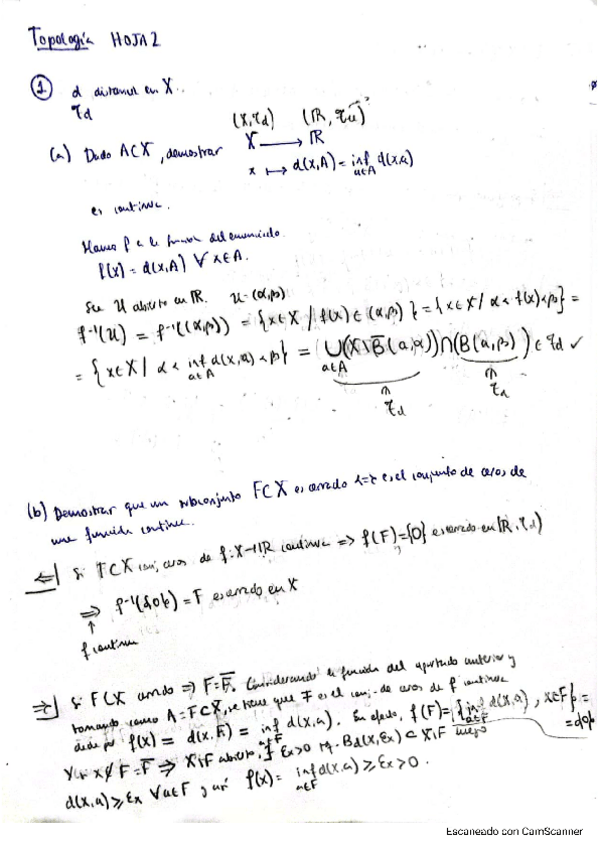 Topología HOJA 2
① d distancia en X.
τ_d
(X, τ_d) (ℝ, τ_u)
(a) Dado A⊂X, demostrar X ⟶ ℝ
x ↦ d(x,A) = inf_{a∈A} d(x,a)
es continua.
f(x) = d(x,A) ∀x∈A.
Sea U abierto en ℝ. U=(α,β)
f⁻¹(U) = f⁻¹((α,β)) = {x∈X / f(x)∈(α,β)} = {x∈X / α<f(x)<β} =
= {x∈X / α < inf_{a∈A} d(x,a) < β} = ⋃_{a∈A} (X\B̅(a,α))∩(B(a,β)) ∈ τ_d ✓
∈ τ_d ∈ τ_d
(b) Demostrar que un subconjunto F⊂X es cerrado <=> es el conjunto de ceros de
una función continua.
⇐| Si F⊂X conj. ceros de f:X→ℝ continua => f(F)={0} es cerrado en (ℝ, τ_d)
=> f⁻¹({0}) = F es cerrado en X
↑
f continua
⇒| Si F⊂X cerrado => F=F̅. Considerando la función del apartado anterior y
tomando como A=F⊂X, se tiene que F es el conj. de ceros de f continua
dada por f(x) = d(x,F) = inf_{a∈F} d(x,a). En efecto, f(F) = {inf_{a∈F} d(x,a), x∈F} =
={0}
y si x∉F=F̅ => X\F abierto, ∃ εx>0 tq. B_d(x,εx) ⊂ X\F luego
d(x,a) ≥ εx ∀a∈F y así f(x) = inf_{a∈F} d(x,a) ≥ εx > 0.
Escaneado con CamScanner